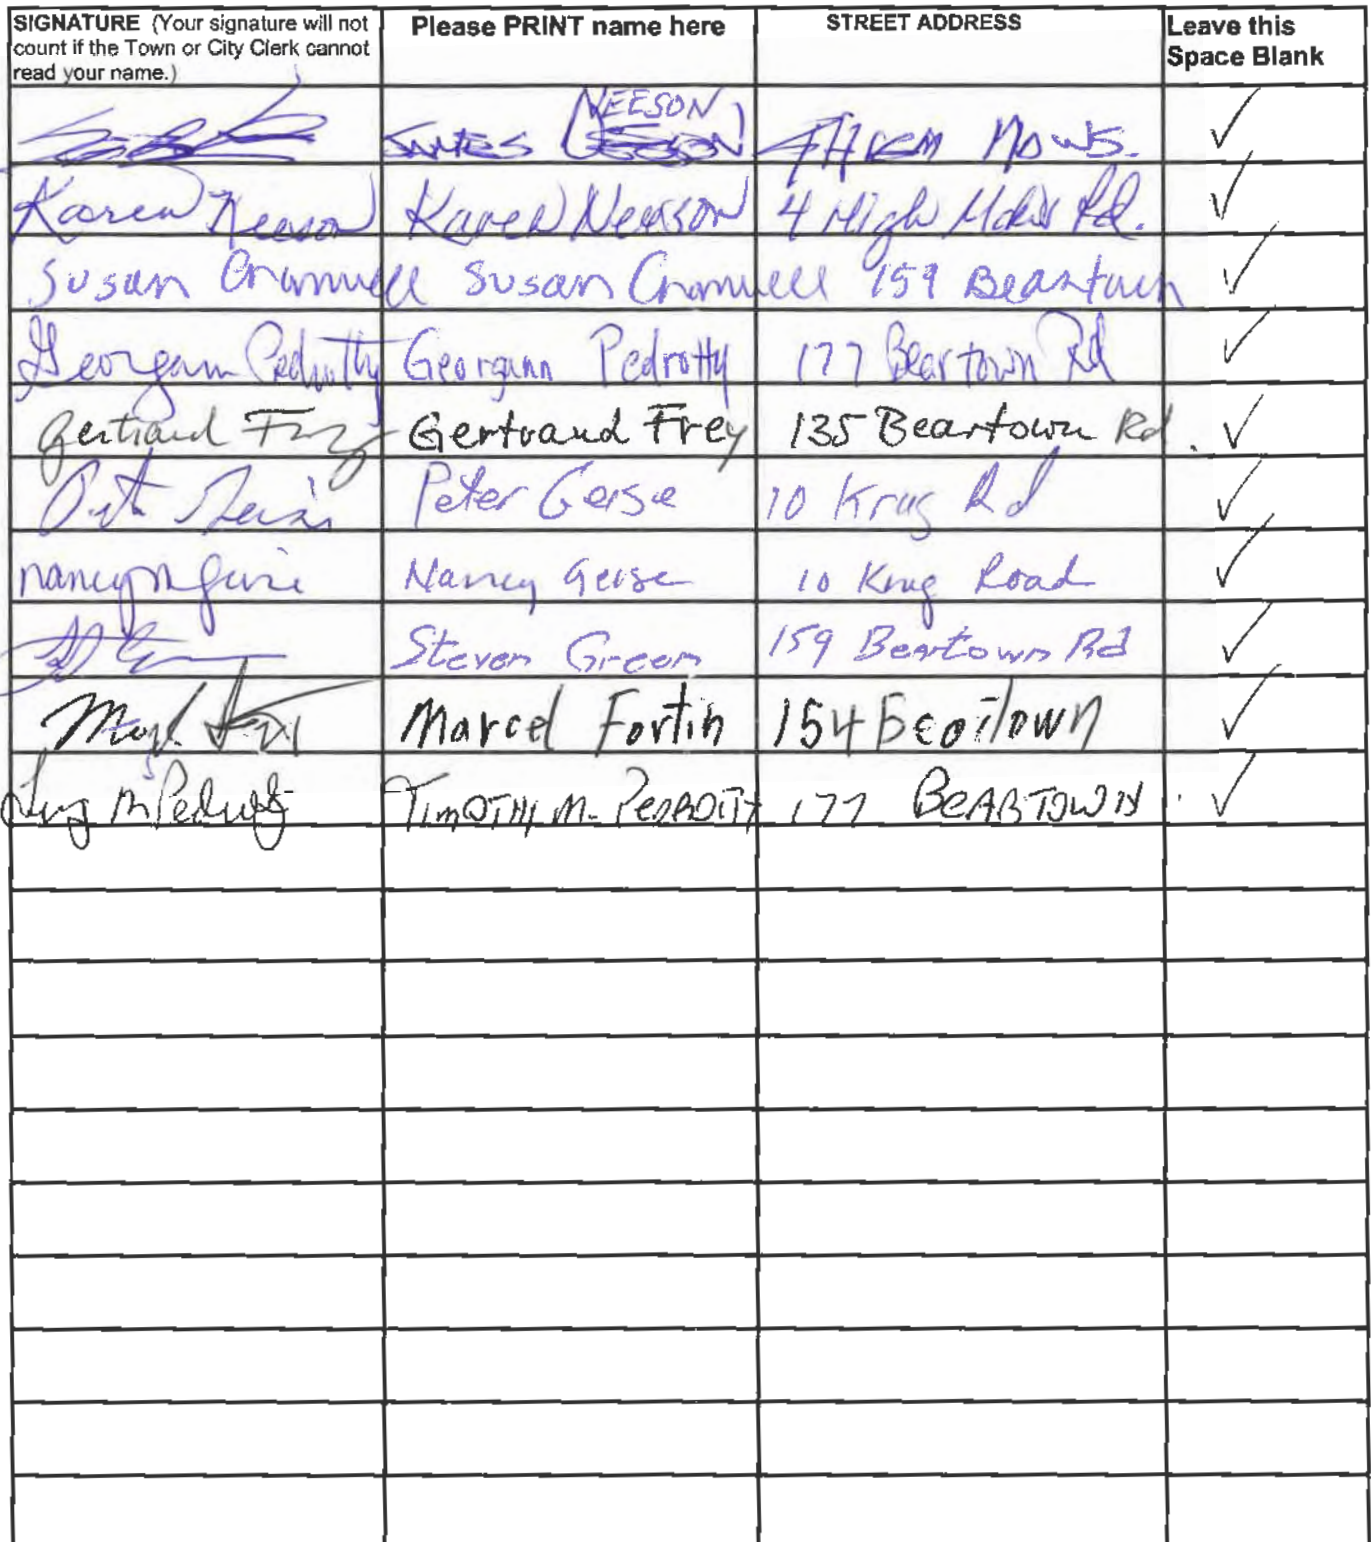 SIGNATURE (Your signature will not count if the Town or City Clerk cannot read your name.) Please PRINT name here STREET ADDRESS Leave this Space Blank
NEESON
James 4 ✓
Karen Neeson Karen Neeson 4 High Rd. ✓
Susan Cromwell Susan Cromwell 159 Beartown ✓
Georgann Pedrotty Georgann Pedrotty 177 Beartown Rd ✓
Gertraud Frey Gertraud Frey 135 Beartown Rd. ✓
Peter Geise 10 Krug Rd ✓
Nancy Geise 10 Krug Road ✓
Steven Green 159 Beartown Rd ✓
Marcel Fortin 154 Beartown ✓
TIMOTHY M. PEDROTTY 177 BEARTOWN ✓